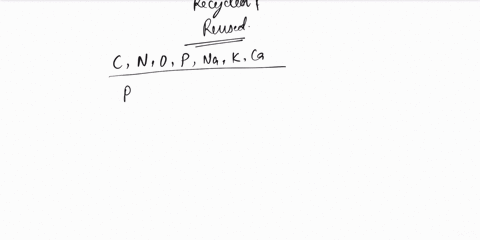 Recycled &
Reused.
C, N, O, P, Na, K, Ca
P